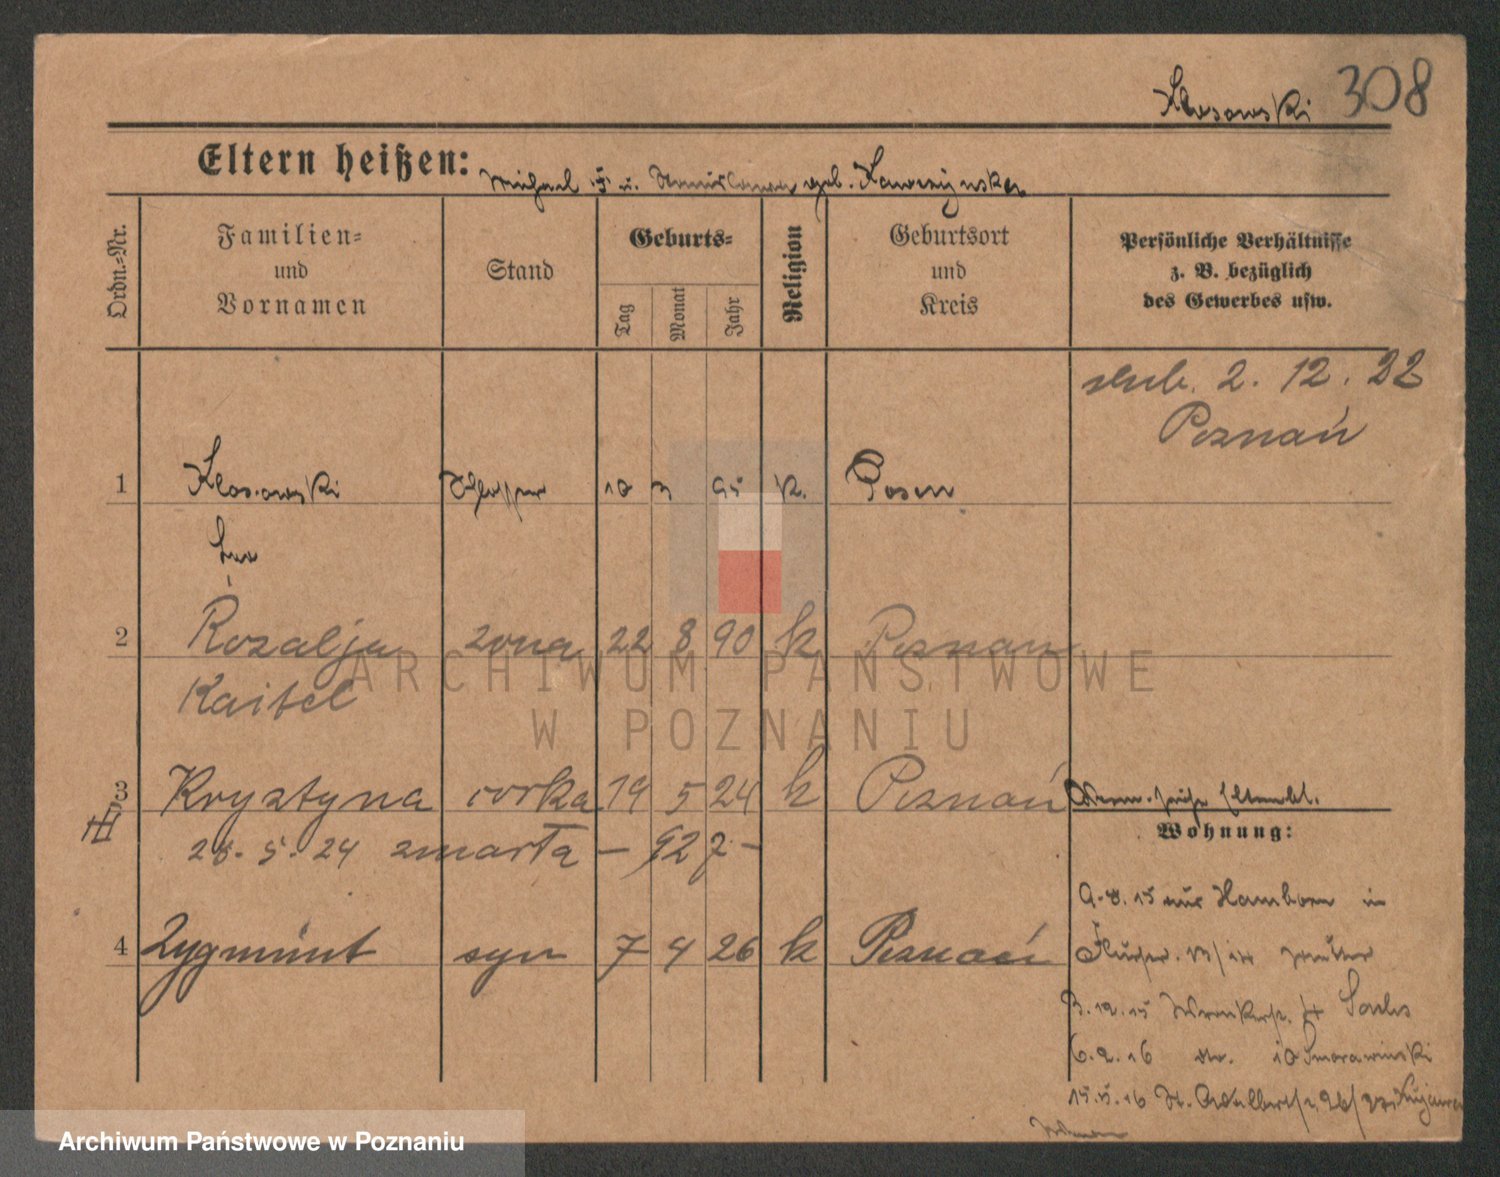 Klosowski 308
Eltern heißen: Michael u. geb.
Ordn.-Nr.
Familien-
und
Vornamen
Stand
Geburts-
Tag
Monat
Jahr
Religion
Geburtsort
und
Kreis
Persönliche Verhältnisse
z. B. bezüglich
des Gewerbes usw.
ślub. 2. 12. 22
Poznań
1 Klosowski 10 3 95 k. Posen
Leo
2 Rozalja żona 22 8 90 k Poznań
Kaitel
3 Krystyna córka 19 5 24 k Poznań
28. 5. 24 zmarła – 927 –
Wohnung:
9.8.15 aus Hamborn in
4 Zygmunt syn 7 4 26 k Poznań
3.12.15
6.2.16 10 Smorawinski
15.5.16 St. Adalbertstr. 26/27
ARCHIWUM PAŃSTWOWE
W POZNANIU
Archiwum Państwowe w Poznaniu